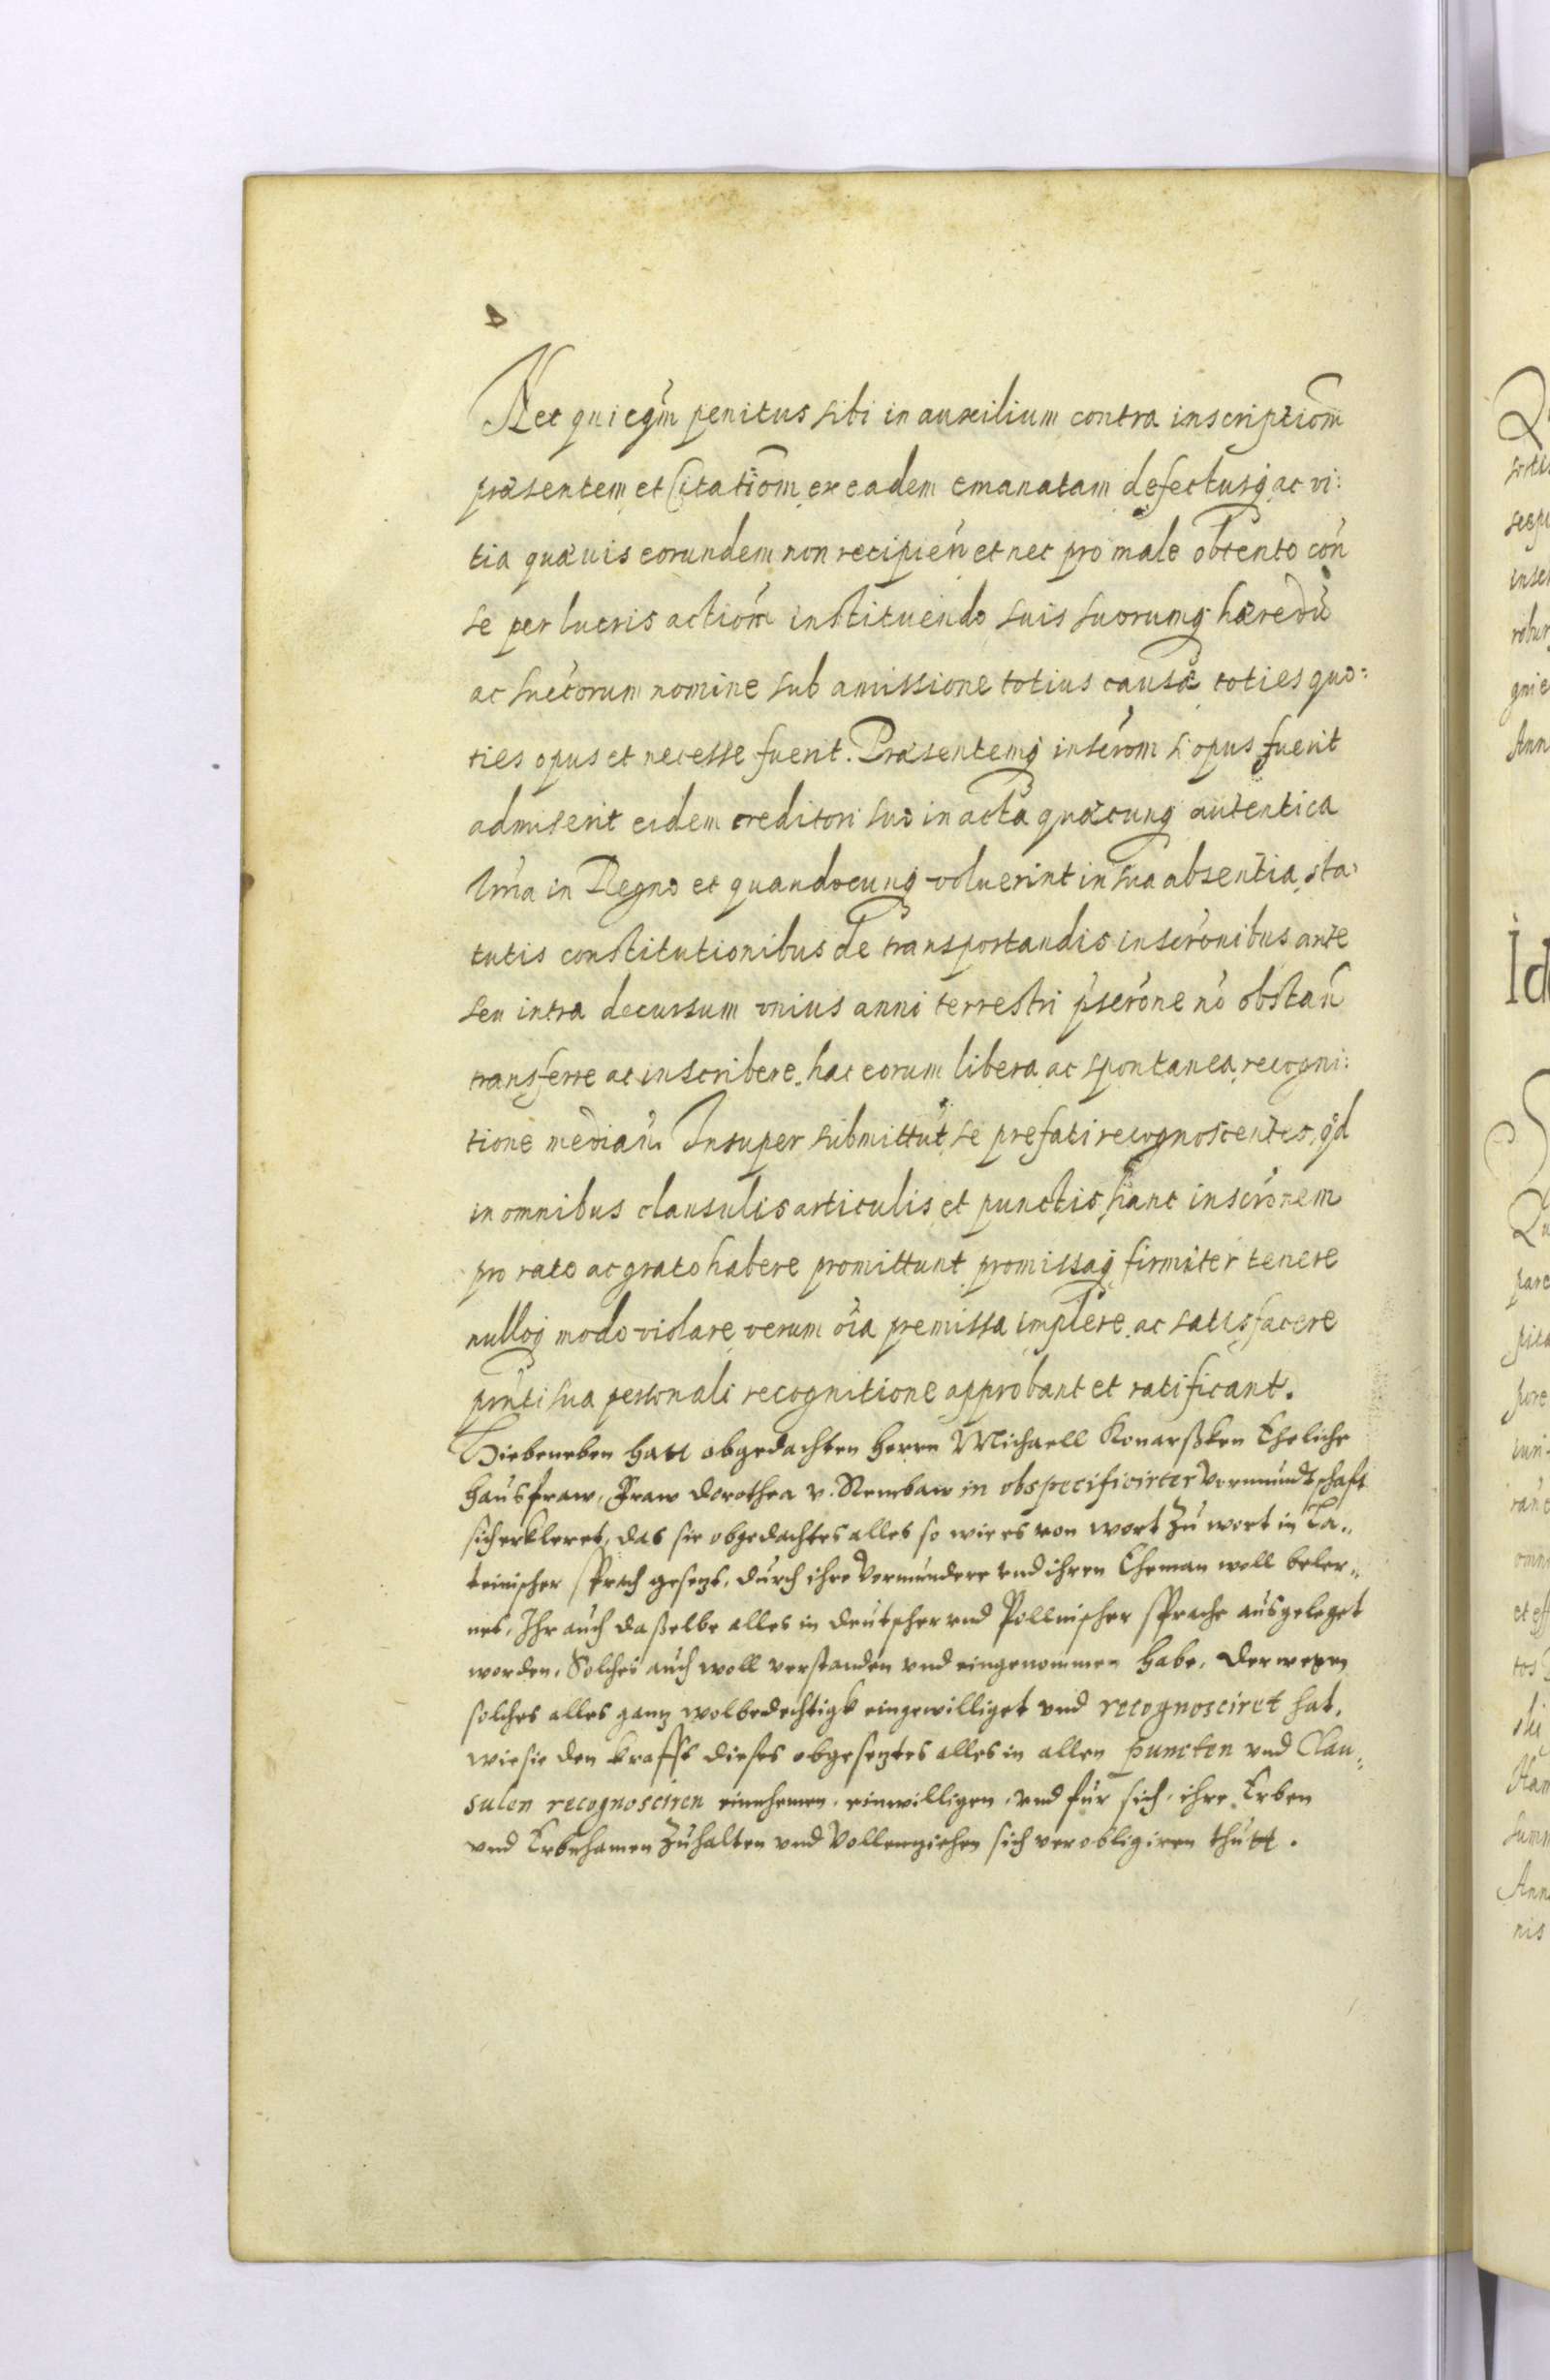 Nec quicqm̃ penitus sibi in auxilium contra inscriptiom̃
præsentem et Citatiom̃ ex eadem emanatam defectusq ac vi:
tia quævis eorundem non recipieñ et nec pro male obtento coñ
se per lucris actiom̃ instituendo suis suorumq hæredũ
ac succorum nomine sub amissione totius causæ toties quo:
ties opus et necesse fuerit. Præsentemq inscrom̃ si opus fuerit
admiserit eidem creditori suo in acta quæcunq autentica
in Regno et quandocunq voluerint in sua absentia, sta:
tutis constitutionibus de transportandis inscronibus ante
seu intra decursum vnius anni terrestri pscrone nõ obstañ
transferre ac inscribere, hac eorum libera ac spontanea recogni:
tione mediañ. Insuper submittũt se prefati recognoscentes, qd
in omnibus clausulis articulis et punctis hanc inscronem
pro rato ac grato habere promittunt promissaq firmiter tenere
nulloq modo violare verum oĩa premissa implere ac satisfacere
pñti sua personali recognitione approbant et ratificant.
Hiebeneben hatt obgedachten Herrn Michaell Konarßken Eheliche
Hausfraw, Fraw Dorothea v. Rembaw in obspecificirter Vormundtschaft
sich erkleret, das sie obgedachtes alles so wie es von wort zu wort in La„
teinischer sprach gesetzt, durch ihre Vormundere vnd ihren Eheman woll beler„
net, Ihr auch daßelbe alles in deutscher vnd Pollnischer sprache ausgeleget
worden, Solches auch woll verstanden vnd eingenommen habe, derwegen
solches alles gantz wolbedechtigk eingewilliget vnd recognosciret hat,
wie sie den krafft dieses obgesetztes alles in allen puncten vnd Clau„
sulen recognosciren einnehmen, einwilligen, vnd für sich, ihre Erben
vnd Erbnhamen zuhalten vnd Vollenziehen sich verobligiren thutt.